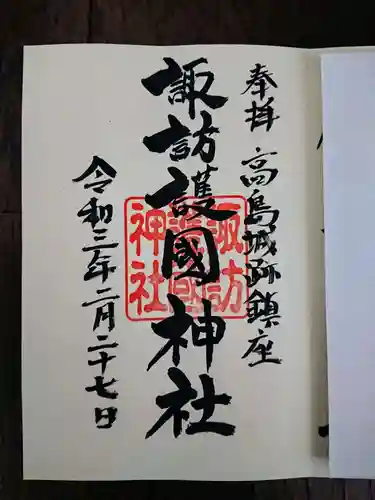 奉拝 高島城跡鎮座
諏訪護國神社
諏訪護國神社
令和三年二月二十七日